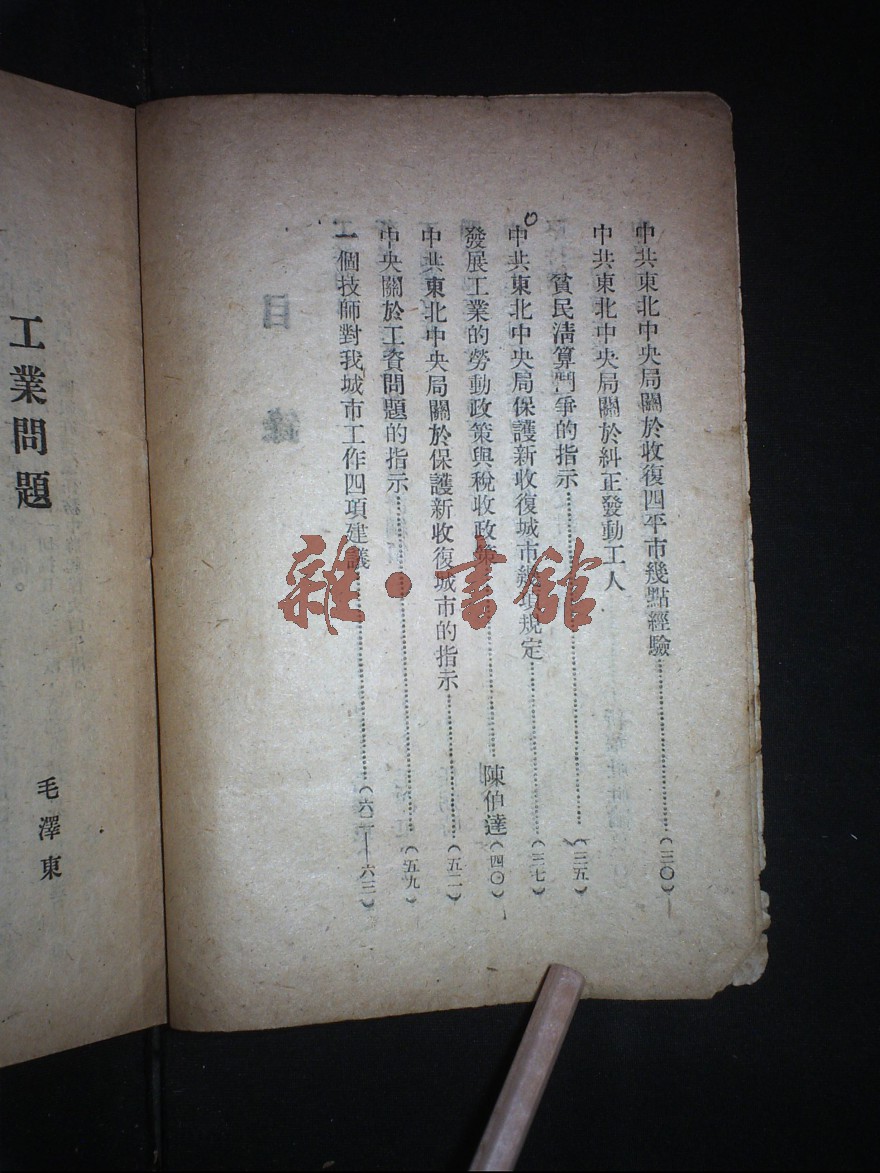 中共東北中央局關於收復四平市幾點經驗………………(三〇)
中共東北中央局關於糾正發動工人
貧民淸算鬥爭的指示………………(三五)
中共東北中央局保護新收復城市幾項規定………………(三七)
發展工業的勞動政策與稅收政策………………陳伯達(四〇)
中共東北中央局關於保護新收復城市的指示………………(五二)
中央關於工資問題的指示………………(五九)
一個技師對我城市工作四項建議………………(六〇—六三)
目錄
工業問題
毛澤東
雜·書館